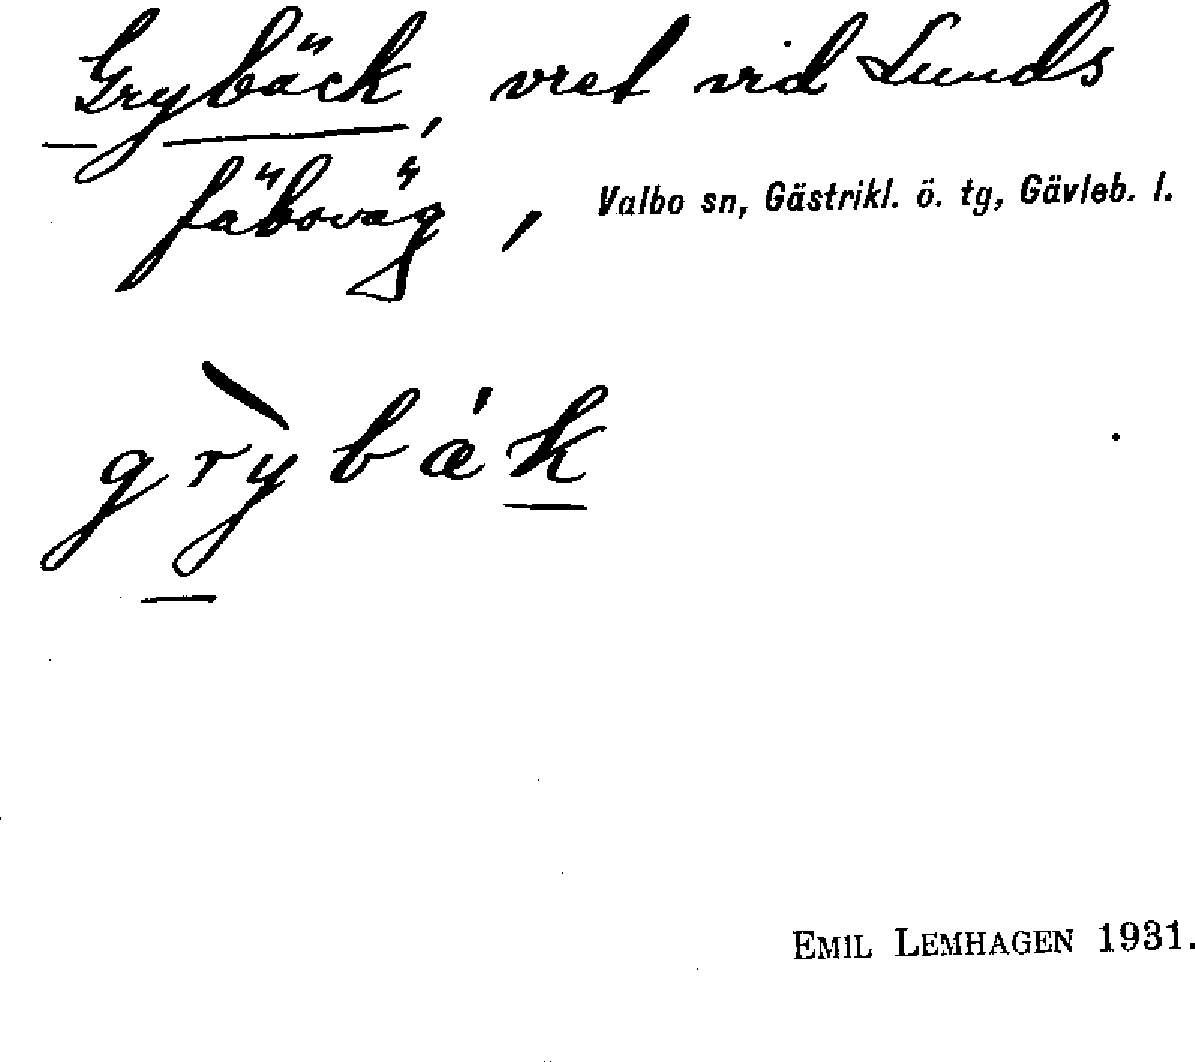 Grybäck, vret vid Lunds
fäboväg, Valbo sn, Gästrikl. ö. tg, Gävleb. l.
grỳ̖bæ̍k
EMIL LEMHAGEN 1931.